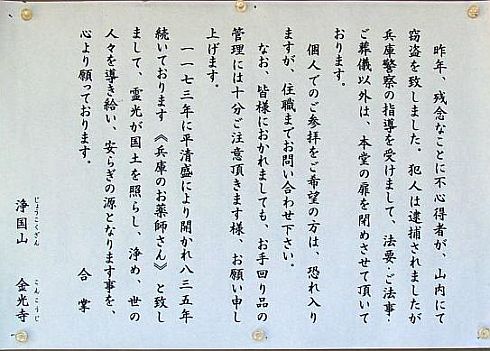 昨年、残念なことに不心得者が、山内にて
窃盗を致しました。犯人は逮捕されましたが
兵庫警察の指導を受けまして、法要・ご法事・
ご葬儀以外は、本堂の扉を閉めさせて頂いて
おります。
個人でのご参拝をご希望の方は、恐れ入り
ますが、住職までお問い合わせ下さい。
なお、皆様におかれましても、お手回り品の
管理には十分ご注意頂きます様、お願い申し
上げます。
一一七三年に平清盛により開かれ八三五年
続いております《兵庫のお薬師さん》と致し
まして、霊光が国土を照らし、浄め、世の
人々を導き給い、安らぎの源となります事を、
心より願っております。
合掌
浄国山 金光寺
じょうこくざん こんこうじ